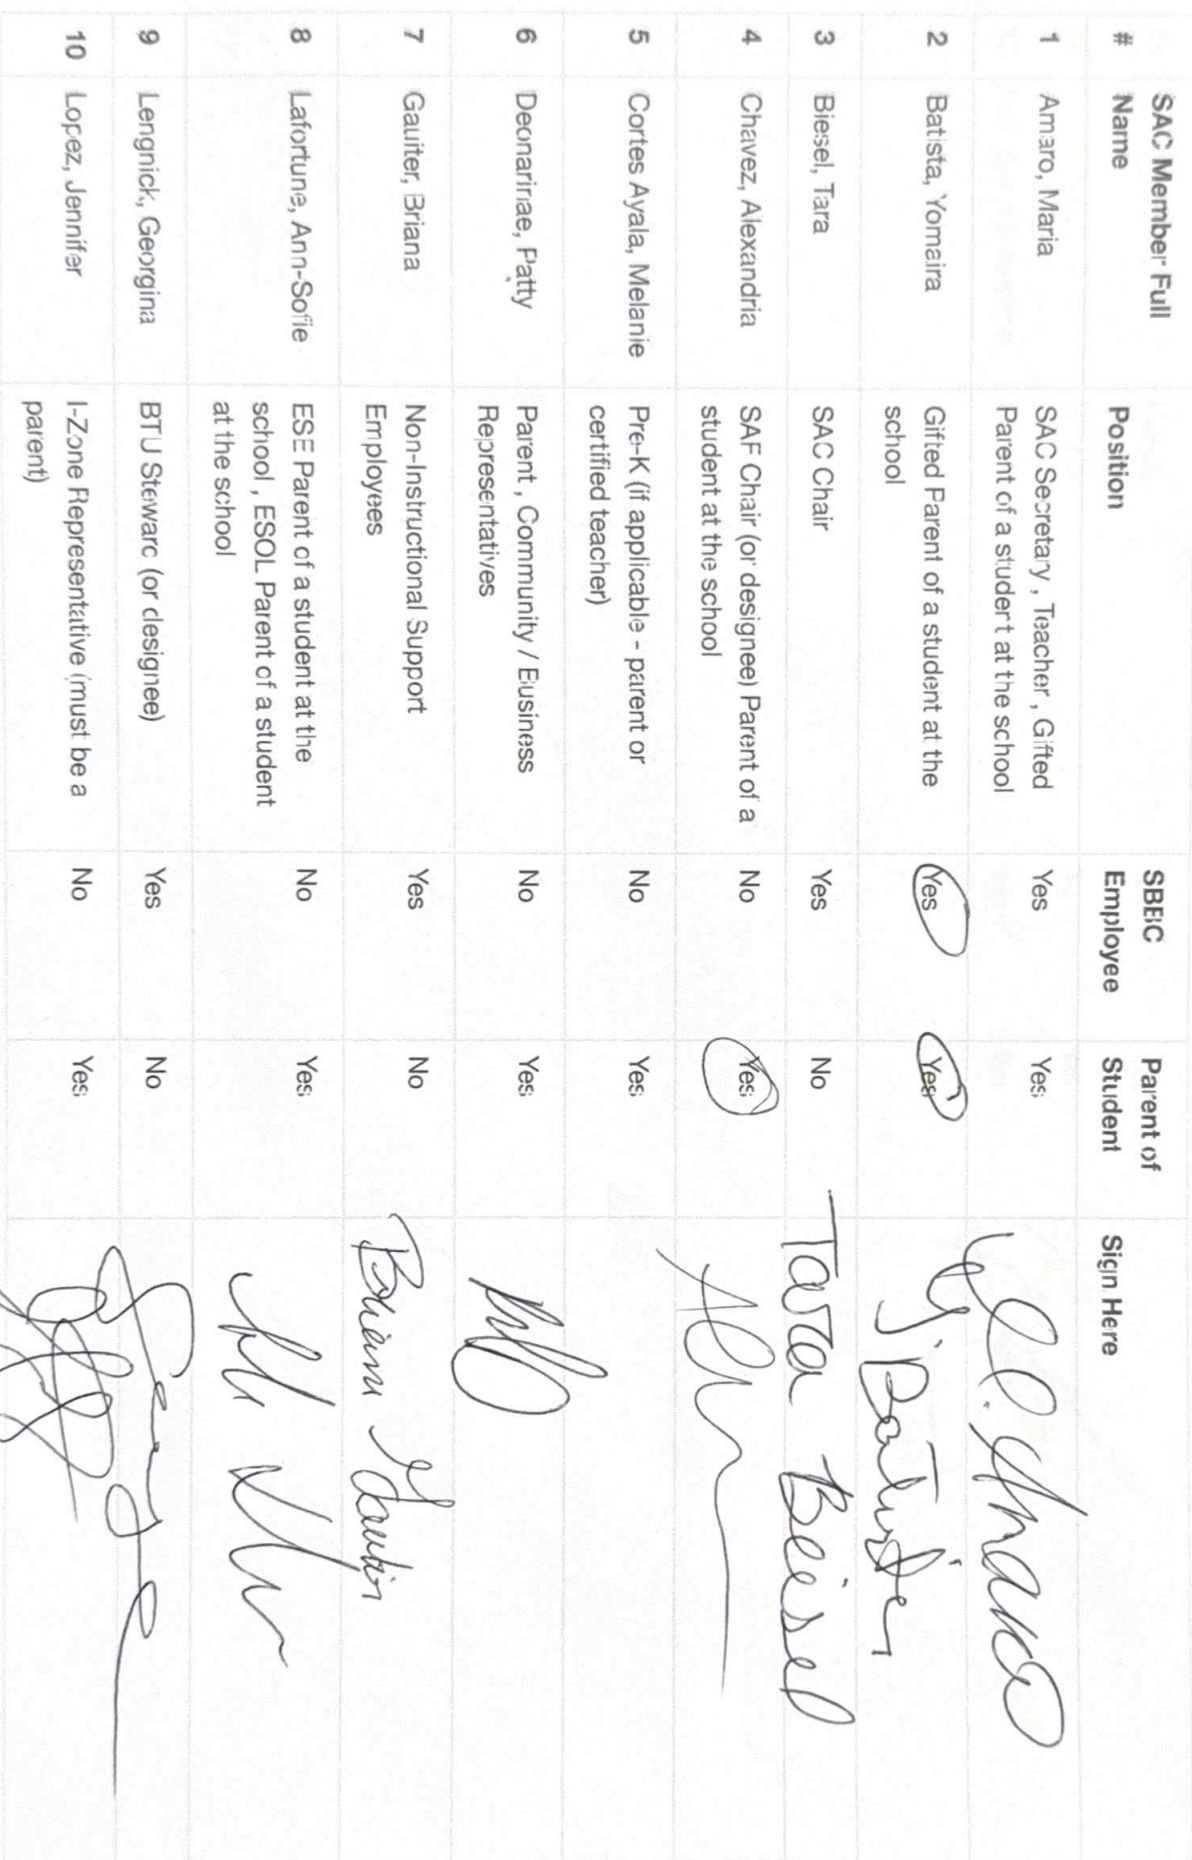 SAC Member Full
# Name Position SBBC Employee Parent of Student Sign Here
1 Amaro, Maria SAC Secretary , Teacher , Gifted Yes Yes
Parent of a student at the school
2 Batista, Yomaira Gifted Parent of a student at the Yes Yes
school
3 Biesel, Tara SAC Chair Yes No Tara Beisel
4 Chavez, Alexandria SAF Chair (or designee) Parent of a No Yes
student at the school
5 Cortes Ayala, Melanie Pre-K (if applicable - parent or No Yes
certified teacher)
6 Deonarinae, Patty Parent , Community / Business No Yes
Representatives
7 Gauiter, Briana Non-Instructional Support Yes No
Employees
8 Lafortune, Ann-Sofie ESE Parent of a student at the No Yes
school , ESOL Parent of a student
at the school
9 Lengnick, Georgina BTU Steward (or designee) Yes No
10 Lopez, Jennifer I-Zone Representative (must be a No Yes
parent)